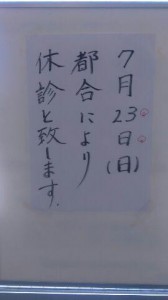 7月23日(日)
都合により
休診と致します.